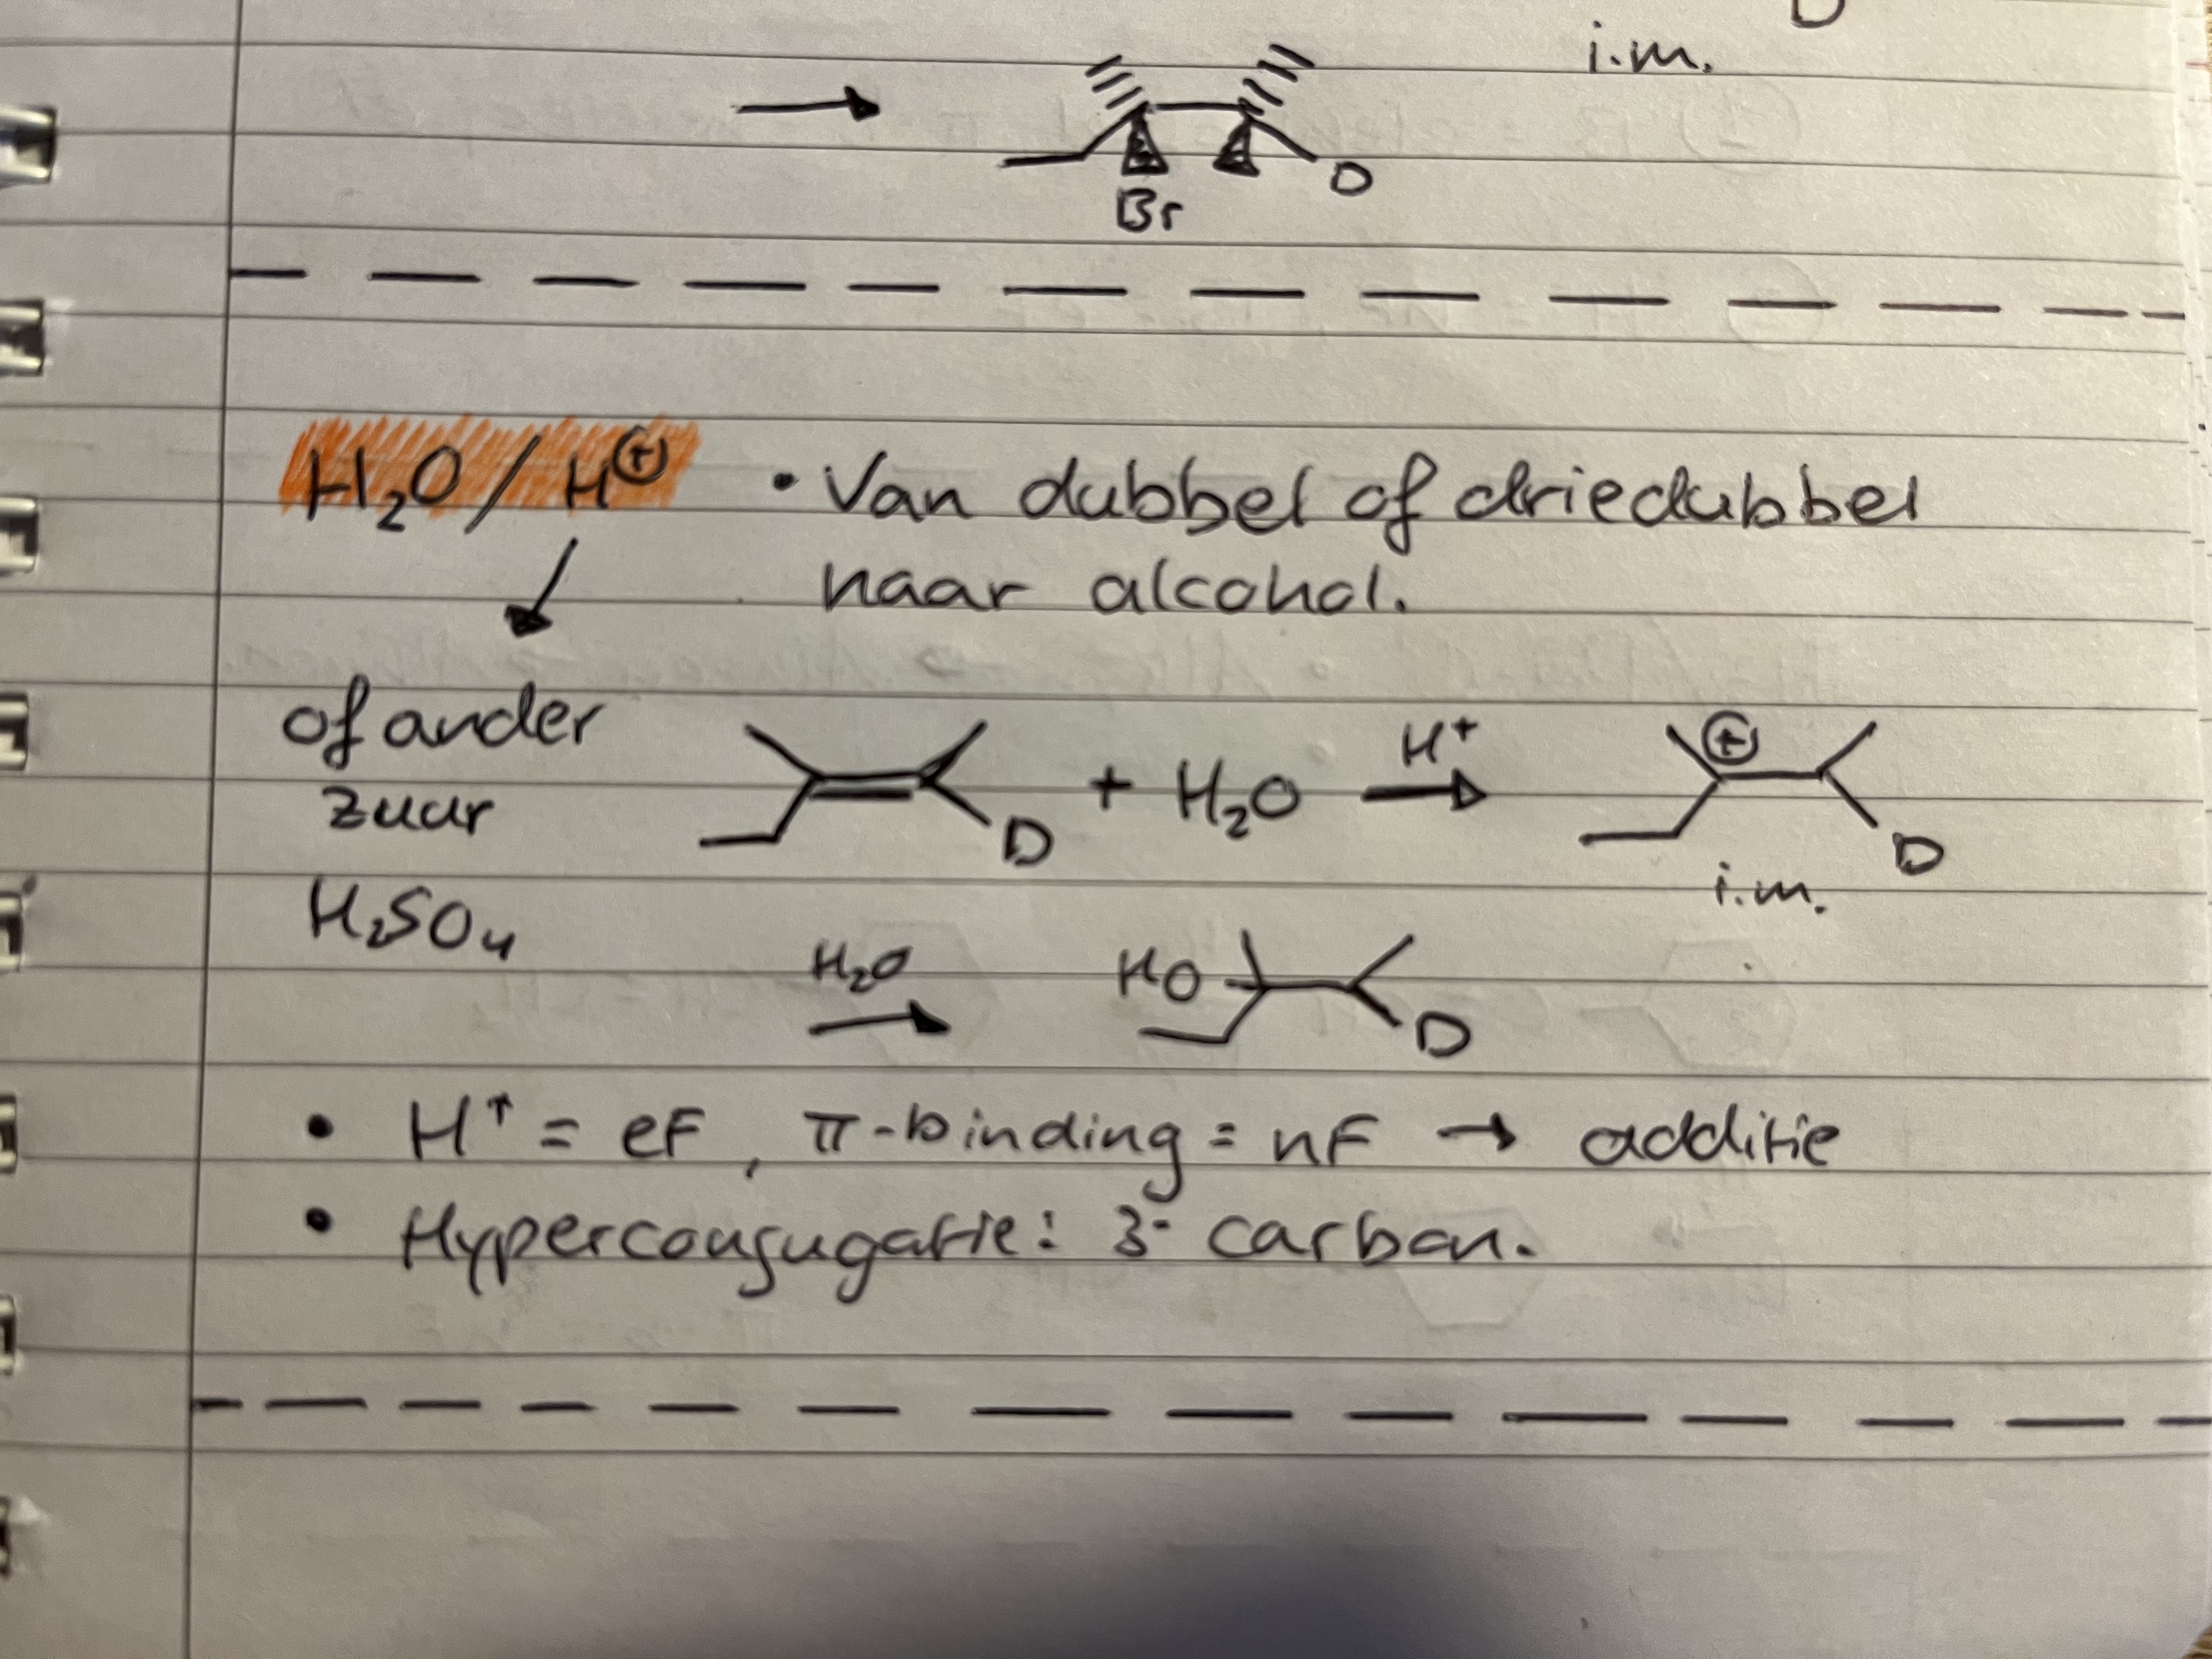 D
i.m.
Br
D
H₂O / H⊕ • Van dubbel of driedubbel
naar alcohol.
of ander
zuur
H₂SO₄
D + H₂O H⁺ ⊕ D
i.m.
H₂O HO D
• H⁺ = eF, π-binding = nF → additie
• Hyperconjugatie: 3° carbon.